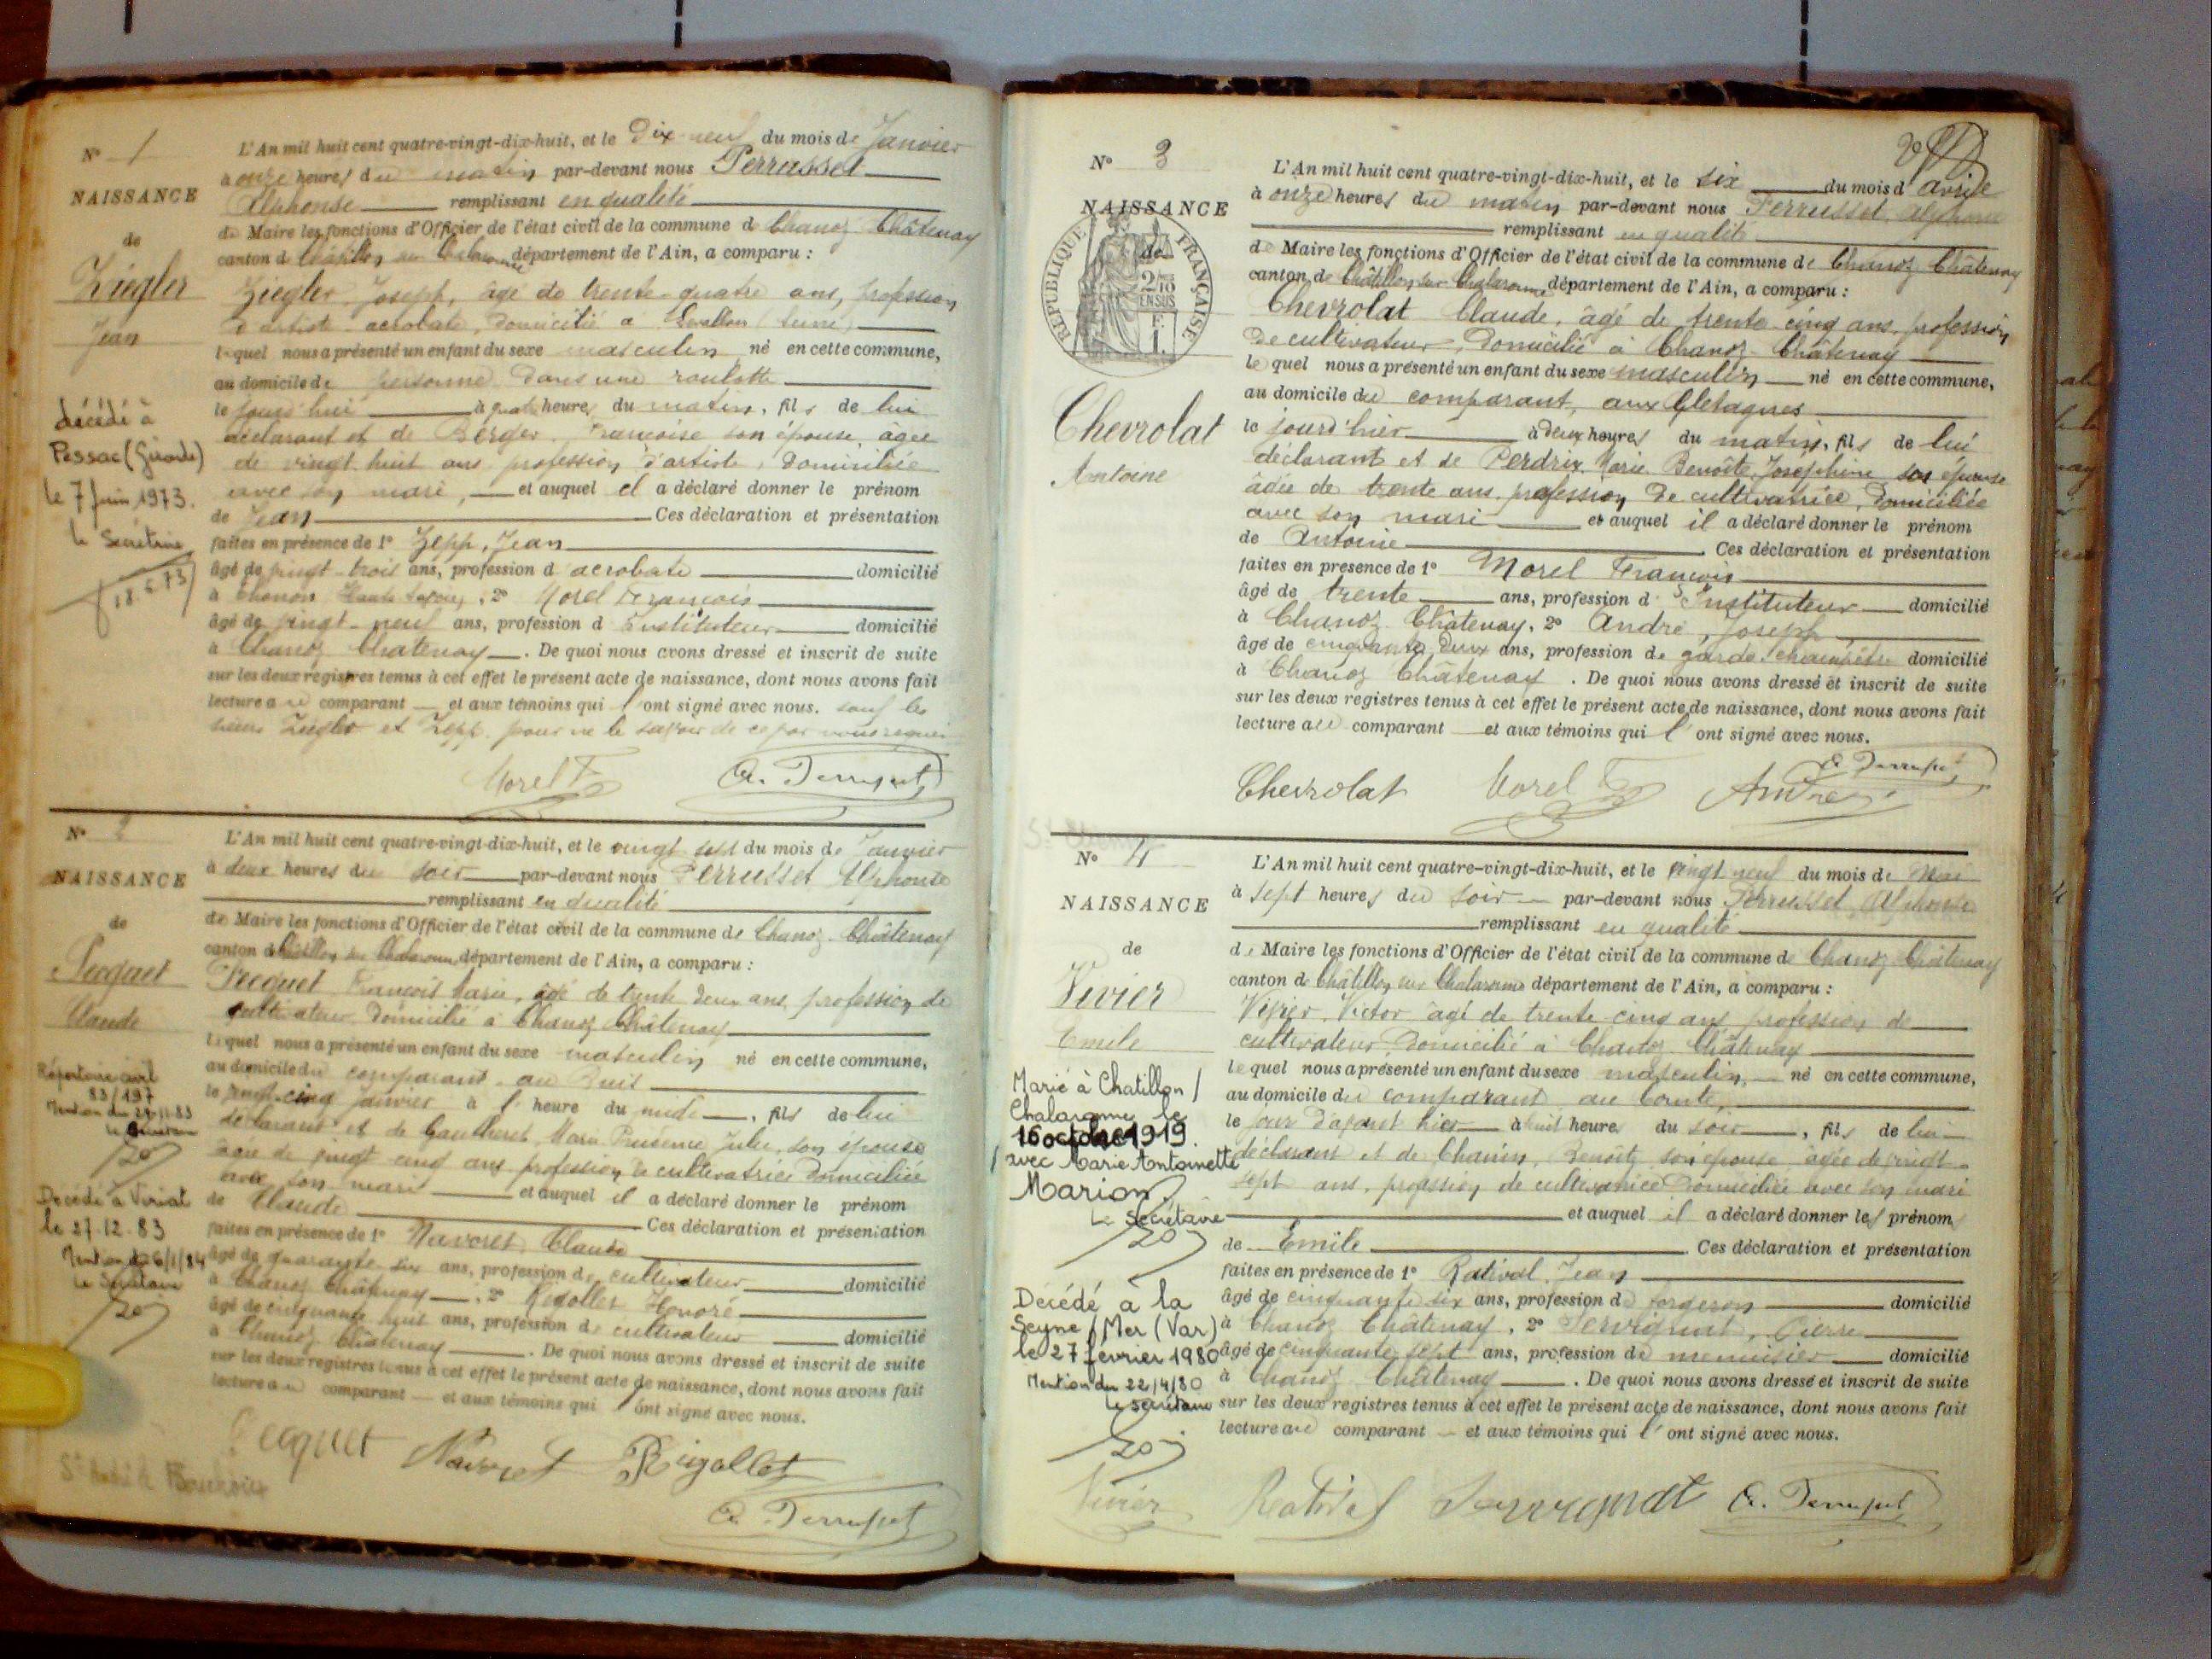 N° 1
NAISSANCE
de
Ziegler
Jean
décédé à
Pessac (Gironde)
le 7 juin 1973.
le Secrétaire
L'An mil huit cent quatre-vingt-dix-huit, et le Dix-neuf du mois de Janvier
à onze heures du matin par-devant nous Perrusset
Alphonse remplissant en qualité
de Maire les fonctions d'Officier de l'état civil de la commune de Chanoz Châtenay
canton de Châtillon sur Chalaronne département de l'Ain, a comparu :
Ziegler Joseph, âgé de trente-quatre ans, profession
d'artiste acrobate, domicilié à Levallois (Seine)
lequel nous a présenté un enfant du sexe masculin né en cette commune,
au domicile de personne dans une roulotte
le jourd'hui à quatre heures du matin, fils de lui
déclarant et de Berger Françoise son épouse, âgée
de vingt huit ans profession d'artiste, domiciliée
avec son mari, et auquel il a déclaré donner le prénom
de Jean Ces déclaration et présentation
faites en présence de 1° Zepp, Jean
âgé de vingt-trois ans, profession d'acrobate domicilié
à Thonon Haute Savoie, 2° Morel François
âgé de vingt-neuf ans, profession d'Instituteur domicilié
à Chanoz Chatenay. De quoi nous avons dressé et inscrit de suite
sur les deux registres tenus à cet effet le présent acte de naissance, dont nous avons fait
lecture au comparant et aux témoins qui l'ont signé avec nous. sauf les
sieurs Ziegler et Zepp pour ne le savoir de ce par nous requis
Morel F A. Perrusset
N° 2
NAISSANCE
de
Pecquet
Claude
Répertoire civil
83/197
Mention du 29.11.83
le Secrétaire
Decédé à Viriat
le 27.12.83
Mention du 6/1/84
Le Secrétaire
L'An mil huit cent quatre-vingt-dix-huit, et le vingt sept du mois de Janvier
à deux heures du soir par-devant nous Perrusset Alphonse
remplissant en qualité
de Maire les fonctions d'Officier de l'état civil de la commune de Chanoz Châtenay
canton de Châtillon sur Chalaronne département de l'Ain, a comparu :
Pecquet François Marie, âgé de trente deux ans, profession de
cultivateur domicilié à Chanoz Châtenay
lequel nous a présenté un enfant du sexe masculin né en cette commune,
au domicile du comparant au
le vingt-cinq janvier à heure du midi, fils de lui
déclarant et de Gautheret Marie Julie, son épouse
âgée de vingt cinq ans profession de cultivatrice domiciliée
avec son mari et auquel il a déclaré donner le prénom
de Claude Ces déclaration et présentation
faites en présence de 1° Navoret, Claude
âgé de quarante six ans, profession de cultivateur domicilié
à Chanoz Châtenay, 2° Rigollet Honoré
âgé de cinquante huit ans, profession de cultivateur domicilié
à Chanoz Châtenay. De quoi nous avons dressé et inscrit de suite
sur les deux registres tenus à cet effet le présent acte de naissance, dont nous avons fait
lecture au comparant et aux témoins qui l'ont signé avec nous.
Pecquet Navoret Rigollet
A. Perrusset
N° 3
NAISSANCE
de
RÉPUBLIQUE FRANÇAISE
2/10 EN SUS
Chevrolat
Antoine
L'An mil huit cent quatre-vingt-dix-huit, et le six du mois d'avril
à onze heures du matin par-devant nous Perrusset Alphonse
remplissant en qualité
de Maire les fonctions d'Officier de l'état civil de la commune de Chanoz Châtenay
canton de Châtillon sur Chalaronne département de l'Ain, a comparu :
Chevrolat Claude, âgé de trente-cinq ans, profession
de cultivateur, domicilié à Chanoz-Châtenay
lequel nous a présenté un enfant du sexe masculin né en cette commune,
au domicile du comparant, aux Gletagnes
le jourd'hier à deux heures du matin, fils de lui
déclarant et de Perdrix Marie Benoîte Josephine son épouse
âgée de trente ans, profession de cultivatrice, domiciliée
avec son mari et auquel il a déclaré donner le prénom
de Antoine Ces déclaration et présentation
faites en présence de 1° Morel François
âgé de trente ans, profession d'Instituteur domicilié
à Chanoz Châtenay, 2° André, Joseph
âgé de cinquante deux ans, profession de garde champêtre domicilié
à Chanoz Châtenay. De quoi nous avons dressé et inscrit de suite
sur les deux registres tenus à cet effet le présent acte de naissance, dont nous avons fait
lecture au comparant et aux témoins qui l'ont signé avec nous.
A. Perrusset
Chevrolat Morel F André
N° 4
NAISSANCE
de
Vivier
Emile
Marié à Chatillon /
Chalaronne le
16 octobre 1919
avec Marie Antoinette
Marion
Le Secrétaire
Décédé à la
Seyne / Mer (Var)
le 27 fevrier 1980
Mention du 22/4/80
le secrétaire
L'An mil huit cent quatre-vingt-dix-huit, et le vingt neuf du mois de Mai
à sept heures du soir par-devant nous Perrusset Alphonse
remplissant en qualité
de Maire les fonctions d'Officier de l'état civil de la commune de Chanoz Châtenay
canton de Châtillon sur Chalaronne département de l'Ain, a comparu :
Vivier Victor âgé de trente cinq ans profession de
cultivateur, domicilié à Chanoz Châtenay
lequel nous a présenté un enfant du sexe masculin, né en cette commune,
au domicile du comparant au
le jour d'avant hier à huit heures du soir, fils de lui
déclarant et de Benoîte, son épouse, âgée de vingt
sept ans, profession de cultivatrice domiciliée avec son mari
et auquel il a déclaré donner les prénoms
de Emile Ces déclaration et présentation
faites en présence de 1° Rativel Jean
âgé de cinquante six ans, profession de forgeron domicilié
à Chanoz Châtenay, 2° Servignat, Pierre
âgé de cinquante sept ans, profession de menuisier domicilié
à Chanoz Châtenay. De quoi nous avons dressé et inscrit de suite
sur les deux registres tenus à cet effet le présent acte de naissance, dont nous avons fait
lecture au comparant et aux témoins qui l'ont signé avec nous.
Vivier Rativel Servignat A. Perrusset